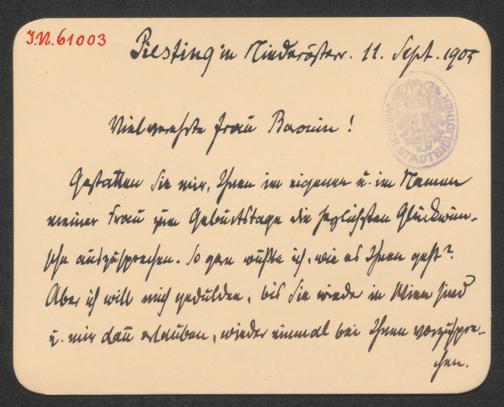 I.N. 61003
Piesting in Niederösterr. 11. Sept. 1905
WIENER STADTBIBLIOTHEK
Vielverehrte Frau Baronin!
Gestatten Sie mir, Ihnen im eigenen u. im Namen
meiner Frau zum Geburtstage die herzlichsten Glückwün-
sche auszusprechen. So gern wüßte ich, wie es Ihnen geht?
Aber ich will mich gedulden, bis Sie wieder in Wien sind
u. mir dann erlauben, wieder einmal bei Ihnen vorzuspre-
chen.